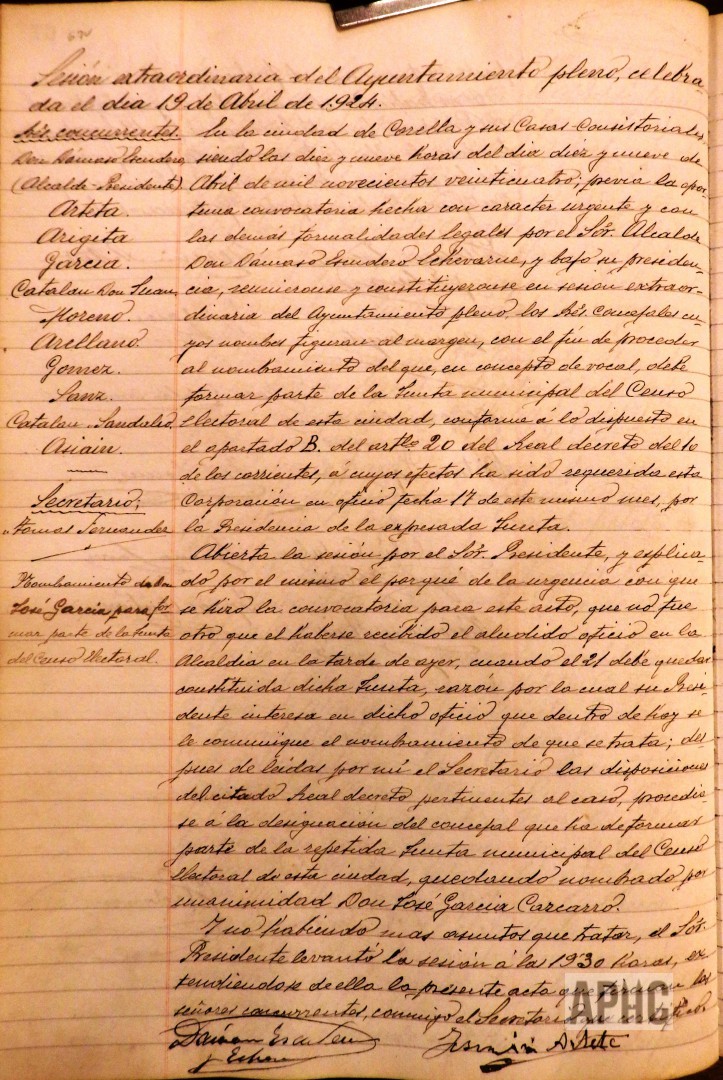 Sesión extraordinaria del Ayuntamiento pleno, celebra
da el dia 19 de Abril de 1924.
Sres concurrentes.
Don Dámaso Escudero
(Alcalde-Presidente)
Arteta.
Arigita
Garcia.
Catalan Don Juan
Moreno.
Arellano.
Gomez.
Sanz.
Catalan Sandalio
Asiain.
Secretario;
" Tomas Fernandez
Nombramiento de Don
José Garcia para for
mar parte de la Junta
del Censo Electoral.
En la ciudad de Corella y sus Casas Consistoriales,
siendo las diez y nueve horas del dia diez y nueve de
Abril de mil novecientos veinticuatro; previa la opor-
tuna convocatoria hecha con caracter urgente y con
las demás formalidades legales por el Sór. Alcalde
Don Dámaso Escudero Echevarne, y bajo su presiden-
cia, reunieronse y constituyeronse en sesión extraor-
dinaria del Ayuntamiento pleno los Sres. Concejales cu-
yos nombes figuran al margen, con el fin de proceder
al nombramiento del que, en concepto de vocal, debe
formar parte de la Junta municipal del Censo
Electoral de esta ciudad, conforme á lo dispuesto en
el apartado B. del artlo 20 del Real decreto del 10
de los corrientes, á cuyos efectos ha sido requerida esta
Corporación en oficio fecha 17 de este mismo mes, por
la Presidencia de la expresada Junta.
Abierta la sesión por el Sór. Presidente, y explica-
do por el mismo el porqué de la urgencia con que
se hizo la convocatoria para este acto, que no fue
otro que el haberse recibido el aludido oficio en la
Alcaldia en la tarde de ayer, cuando el 21 debe quedar
constituida dicha Junta, razón por la cual su Presi-
dente interesa en dicho oficio que dentro de hoy se
le comunique el nombramiento de que se trata; des-
pues de leidas por mi el Secretario las disposiciones
del citado Real decreto pertinentes al caso, procedio-
se á la designación del concejal que ha de formar
parte de la repetida Junta municipal del Censo
Electoral de esta ciudad, quedando nombrado por
unanimidad Don José Garcia Carcarro.
Y no habiendo mas asuntos que tratar, el Sór.
Presidente levantó la sesión á la 1930 horas, ex-
tendiendose de ella la presente acta que los
señores concurrentes, conmigo el Secretario
Dámaso Escudero
y Echev
Fermin Arteta
APHC